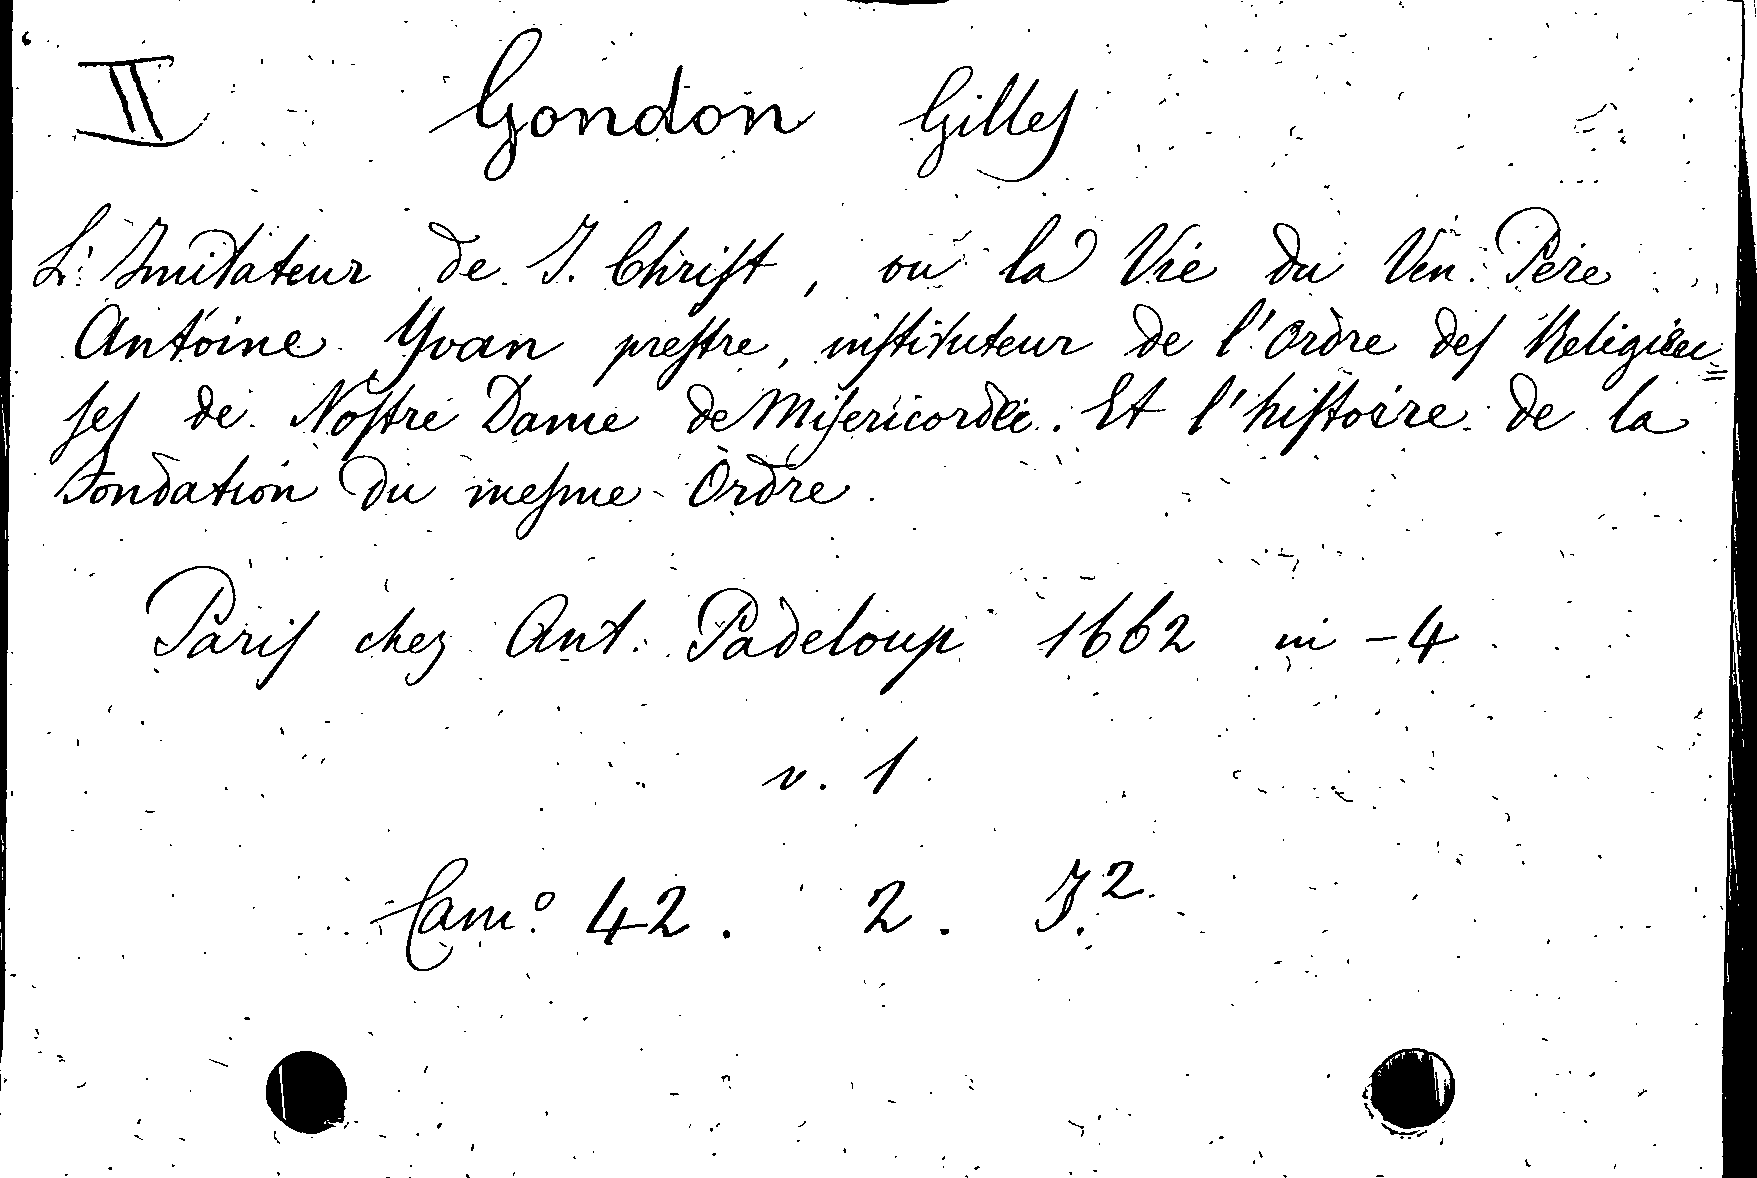 II Gondon Gilles
L'Imitateur de J. Chriſt, ou la Vie du Ven. Père
Antoine Yvan preſtre, inſtituteur de l'Ordre des Religieu=
ſes de Noſtre Dame de Miſericordie. Et l'hiſtoire de la
Fondation du meſme Ordre.
Paris chez Ant. Padeloup 1662 in -4
v. 1
Camº 42. 2. J.2.